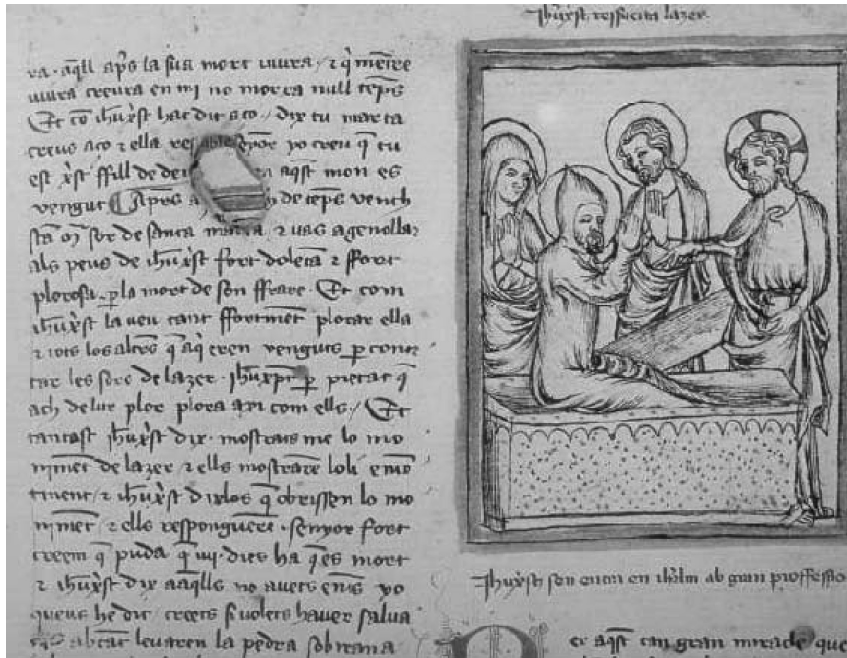 ra · aq̃ll ap̃s la sua mort viura / ⁊ q̃ mẽtre
viura creura en mi no morra null tẽps
Et cõ ih̃ux̃st hac dit aço / dix tu marta
creus aço ⁊ ella
senyor yo creu q̃ tu
est x̃st ffill de deu
aq̃st mon es
vengut
Ap̃s
de tẽps vench
sor de santa maria ⁊ vas agenollar
als peus de ih̃ux̃st fort dolẽta ⁊ ffort
plorosa p̱ la mort de son ffrare · Et com
ih̃ux̃st la veu tant ffortmẽt plorar ella
⁊ tots los altr̃s q̃ aq̃ eren venguts p̱ confor
tar les sors de lazer · ih̃ux̃pt p̱ pietat q̃
ach de lur plor plora axi com ells / Et
tantost ih̃ux̃st dix · mostrats me lo mo
nimẽt de lazer ⁊ ells mostrarẽ loli
tinent / ⁊ ih̃ux̃st dixlos q̃ obrissen lo mo
nimẽt / ⁊ ells respongueren · senyor fort
creem q̃ puda q̃ iiij · dies ha q̃ es mort
⁊ ih̃ux̃st dix aaq̃lls no avets
yo
queus he dit / creets si volets haver salva
levaren la pedra sobirana
Jh̃ux̃st ressucita lazer
Jh̃ux̃st son entra en ih̃rlm ab gran proffesso
aq̃st tan gran miracle que